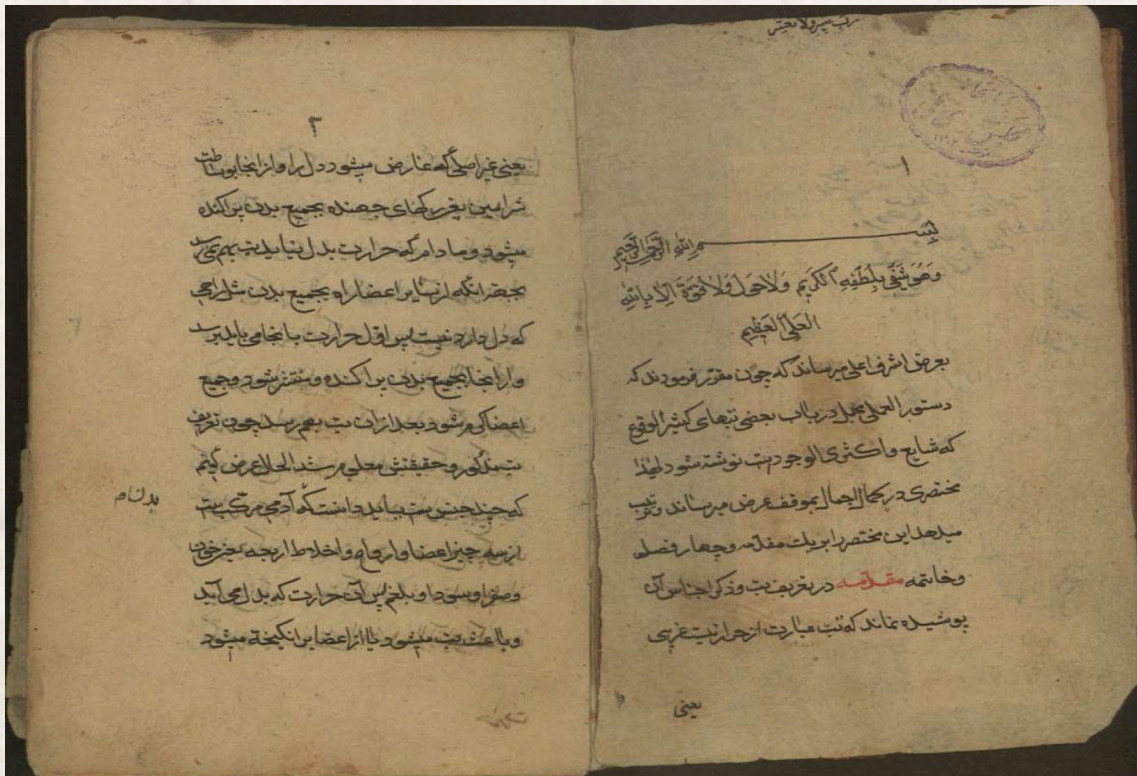 رب یسر ولا تعسر
۱
بسم الله الرحمن الرحیم
وهو شفی بلطفه الکریم ولا حول ولا قوة الا بالله
العلی العظیم
بعرض اشرف اعلی میرساند که چون مقرر فرمودند که
دستور العملی مجمل در باب بعضی تبهای کثیر الوقوع
که شایع و اکثری الوجودست نوشته شود لهذا
مختصری در کمال اجمال بموقف عرض میرساند و ترتیب
میدهد این مختصر را بر یک مقدمه وچهار فصل
وخاتمه مقدمه در تعریف تب وذکر اجناس آن
پوشیده نماند که تب عبارت از حرارتیست غریبی
یعنی
۲
یعنی غیر اصلی که عارض میشود دل را واز انجا بوساطت
شرایین یعنی رکهای جهنده بجمیع بدن پراکنده
میشود ومادام که حرارت بدل نیاید تب بهم نمیرسد
بجهة انکه از سایر اعضا راه بجمیع بدن مثل راهی
که دل دارد نیست پس اول حرارت بانجا می باید برسد
واز انجا بجمیع بدن پراکنده ومنتشر شود وجمیع
اعضا کرم شود بعد از آن تب بهم رسد چون تعریف
تب مذکور وحقیقتش معلوم شد الحال عرض کنیم
که چند جنس ست بباید دانست که آدمی مرکب ست
از سه چیز اعضا وارواح واخلاط اربعه یعنی خون
وصفرا وسودا وبلغم پس آن حرارت که بدل می آید
وباعث تب میشود یا از اعضا برانکیخته میشود